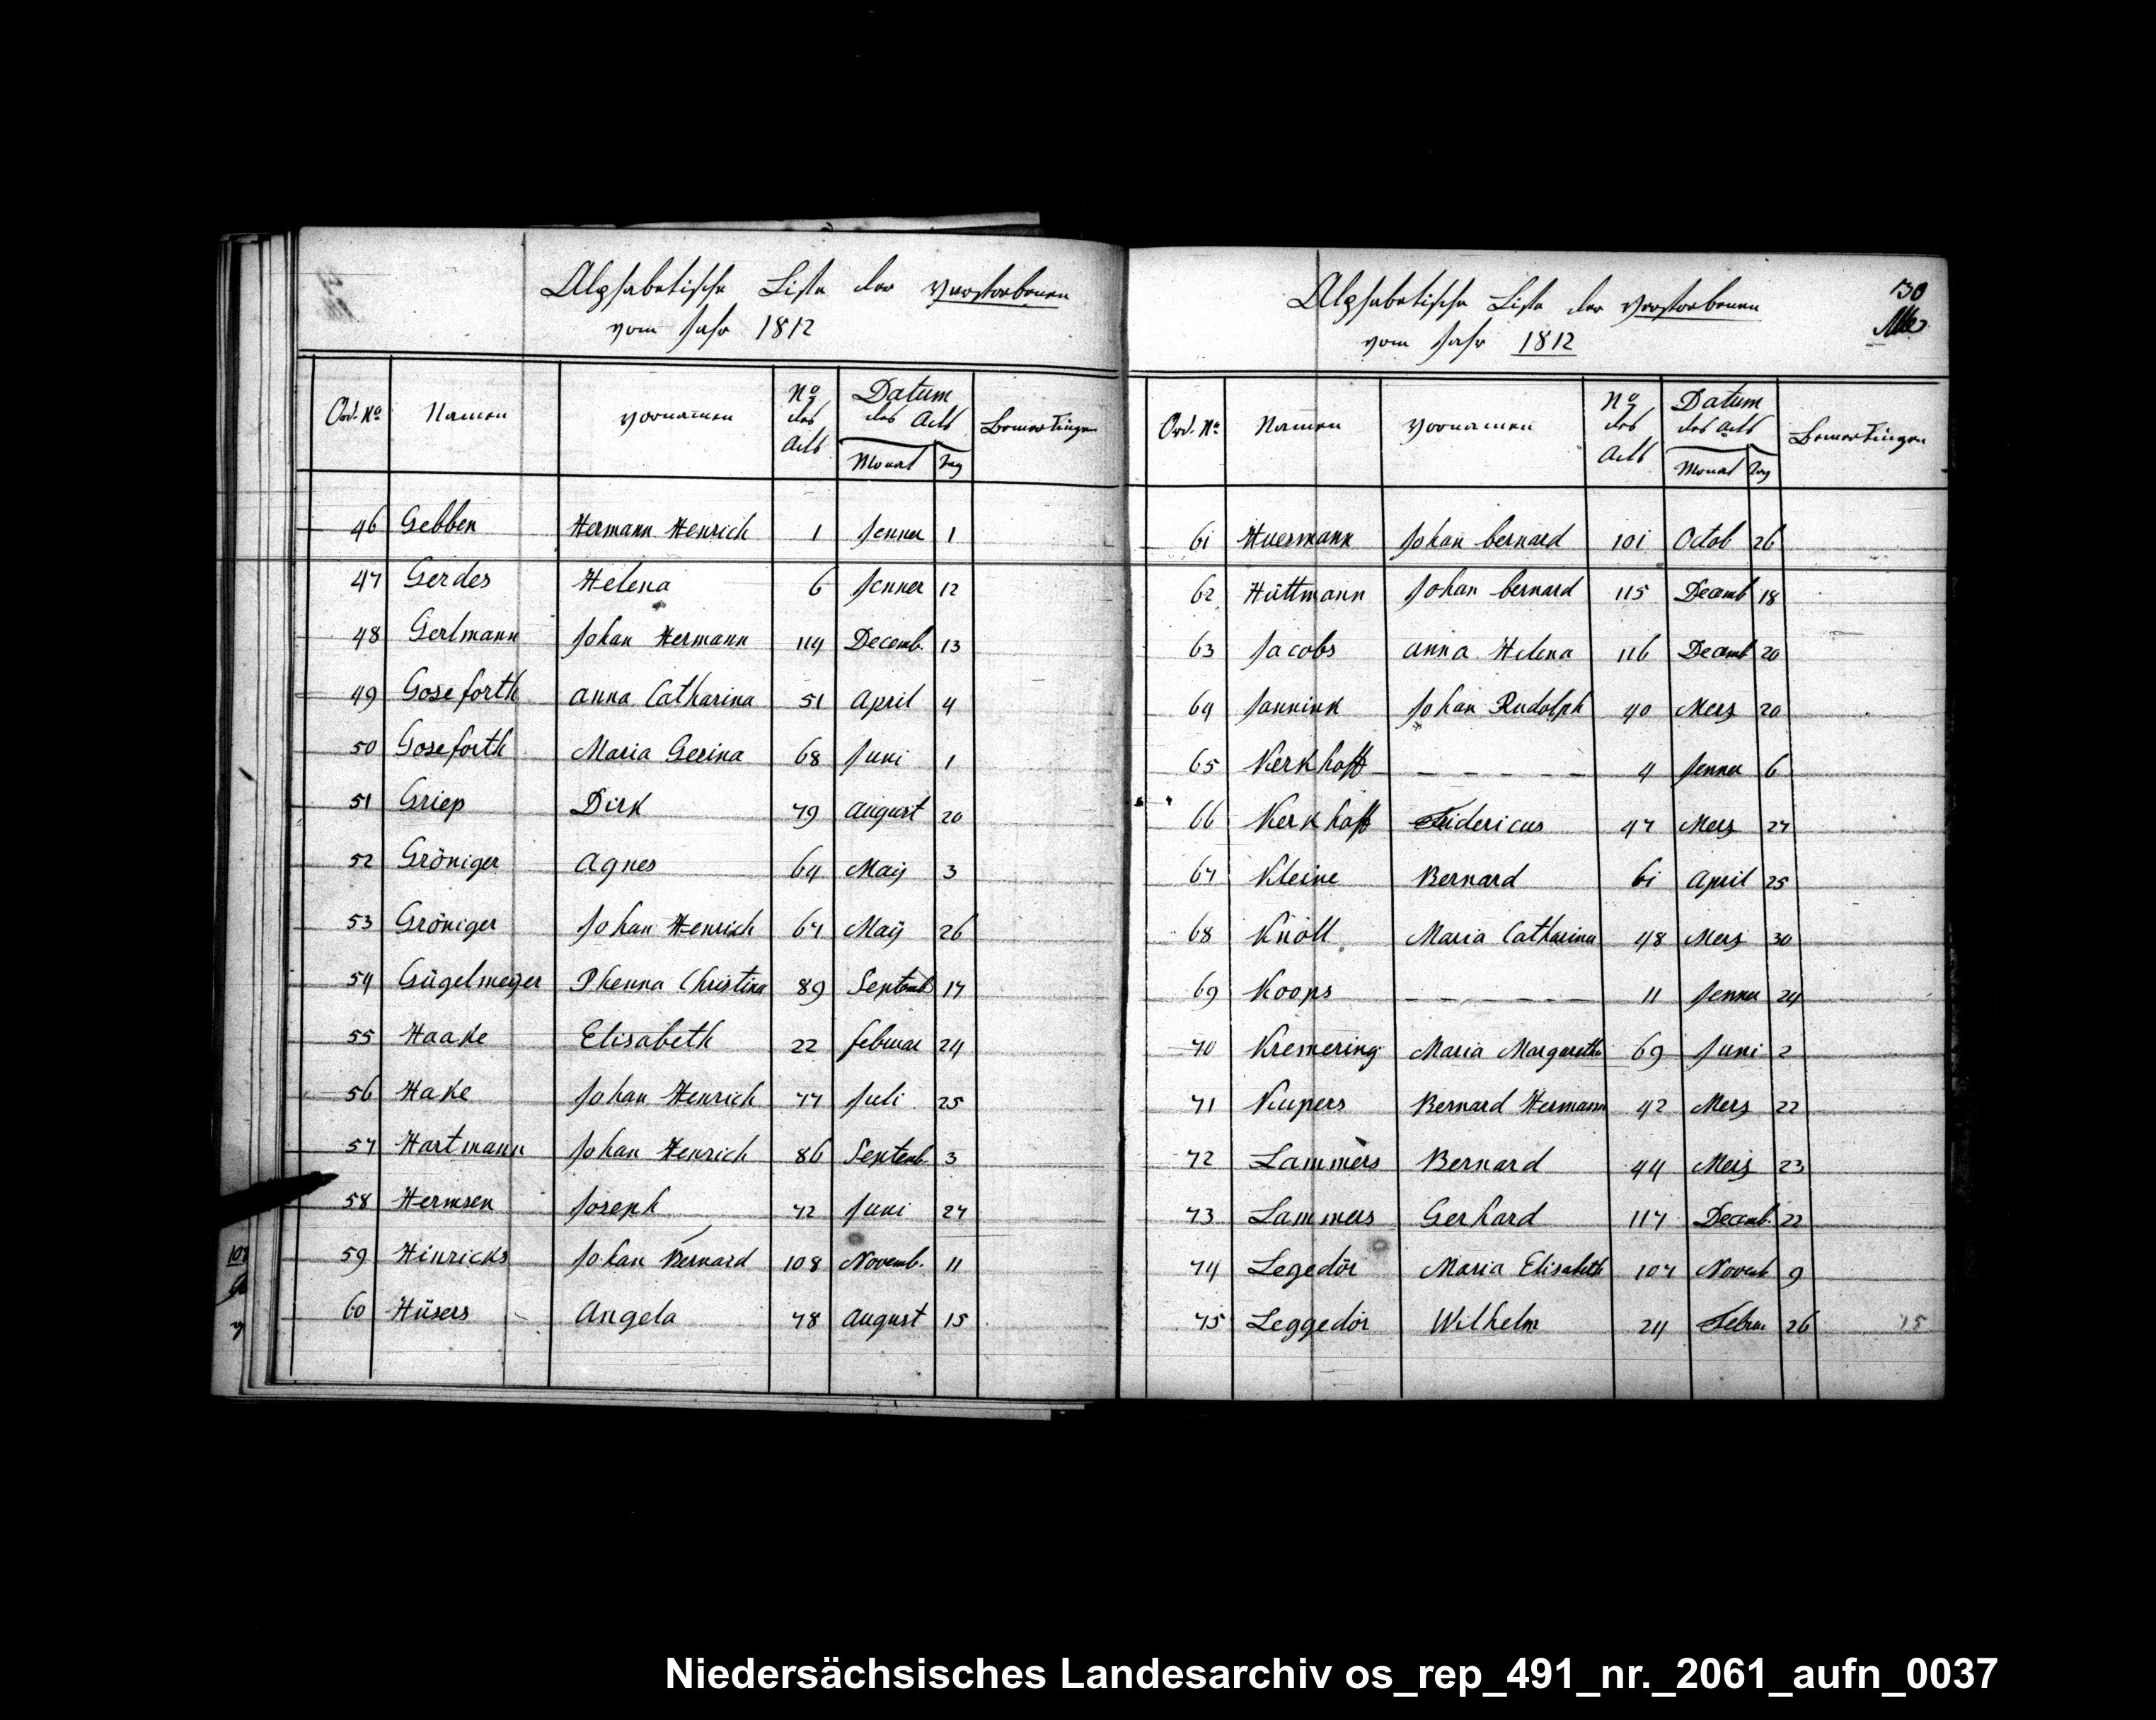 Alphabetische Liste der Verstorbenen
vom Jahr 1812
Ord. No Namen Vornamen No des Acts Datum des Acts Monat Tag Bemerkungen
46 Gebben Hermann Henrich 1 Jenner 1
47 Gerdes Helena 6 Jenner 12
48 Gerlmann Johan Hermann 114 Decemb. 13
49 Goseforth Anna Catharina 51 April 4
50 Goseforth Maria Gerina 68 Juni 1
51 Griep Dirk 79 August 20
52 Gröniger Agnes 64 Maÿ 3
53 Gröniger Johan Henrich 67 Maÿ 26
54 Gügelmeÿer Phenna Christina 89 Septemb 17
55 Haake Elisabeth 22 februar 24
56 Hake Johan Henrich 77 Juli 25
57 Hartmann Johan Henrich 86 Septemb. 3
58 Hermsen Joseph 72 Juni 27
59 Hinricks Johan Bernard 108 Novemb. 11
60 Hüsers Angela 78 August 15
130
Alphabetische Liste der Verstorbenen
vom Jahr 1812
Ord. No Namen Vornamen No des Acts Datum des Acts Monat Tag Bemerkungen
61 Huermann Johan bernard 101 Octob 26
62 Hüttmann Johan bernard 115 Decemb 18
63 Jacobs Anna Helena 116 Decemb 20
64 Jannink Johan Rudolph 40 Merz 20
65 Kerkhoff – – – – – 4 Jenner 6
66 Kerkhoff Fridericus 47 Merz 27
67 Kleine Bernard 61 April 25
68 Knöll Maria Catharina 48 Merz 30
69 Koops – – – – – 11 Jenner 24
70 Kremering Maria Margaretha 69 Juni 2
71 Kupers Bernard Hermann 42 Merz 22
72 Lammers Bernard 44 Merz 23
73 Lammers Gerhard 117 Decemb. 22
74 Legedör Maria Elisabeth 107 Novemb 9
75 Leggedör Wilhelm 24 Febru 26 15
Niedersächsisches Landesarchiv os_rep_491_nr._2061_aufn_0037